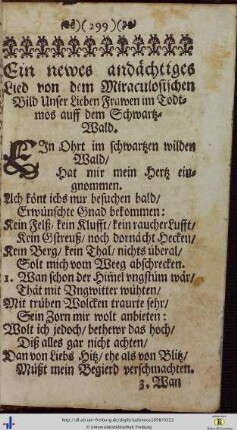 )( 299 )(
Ein newes andächtiges
Lied von dem Miraculosischen
Bild Unser Lieben Frawen im Todt-
mos auff dem Schwartz-
Wald.
EIn Ohrt im schwartzen wilden
Wald/
Hat mir mein Hertz ein-
gnommen.
Ach könt ichs nur besuchen bald/
Erwünschte Gnad bekommen:
Kein Felß/ kein Klufft/ kein raucher Lufft/
Kein Gstreuß/ noch dornächt Hecken/
Kein Berg/ kein Thal/ nichts überal/
Solt mich vom Weeg abschrecken.
2. Wan schon der Himel ungstüm wär/
Thät mit Ungwitter wühten/
Mit trüben Wolcken traurte sehr/
Sein Zorn mir wolt anbieten:
Wolt ich jedoch/ bethewr das hoch/
Diß alles gar nicht achten/
Dan von Liebs Hitz/ ehe als von Blitz/
Müßt mein Begierd verschmachten.
3. Wan